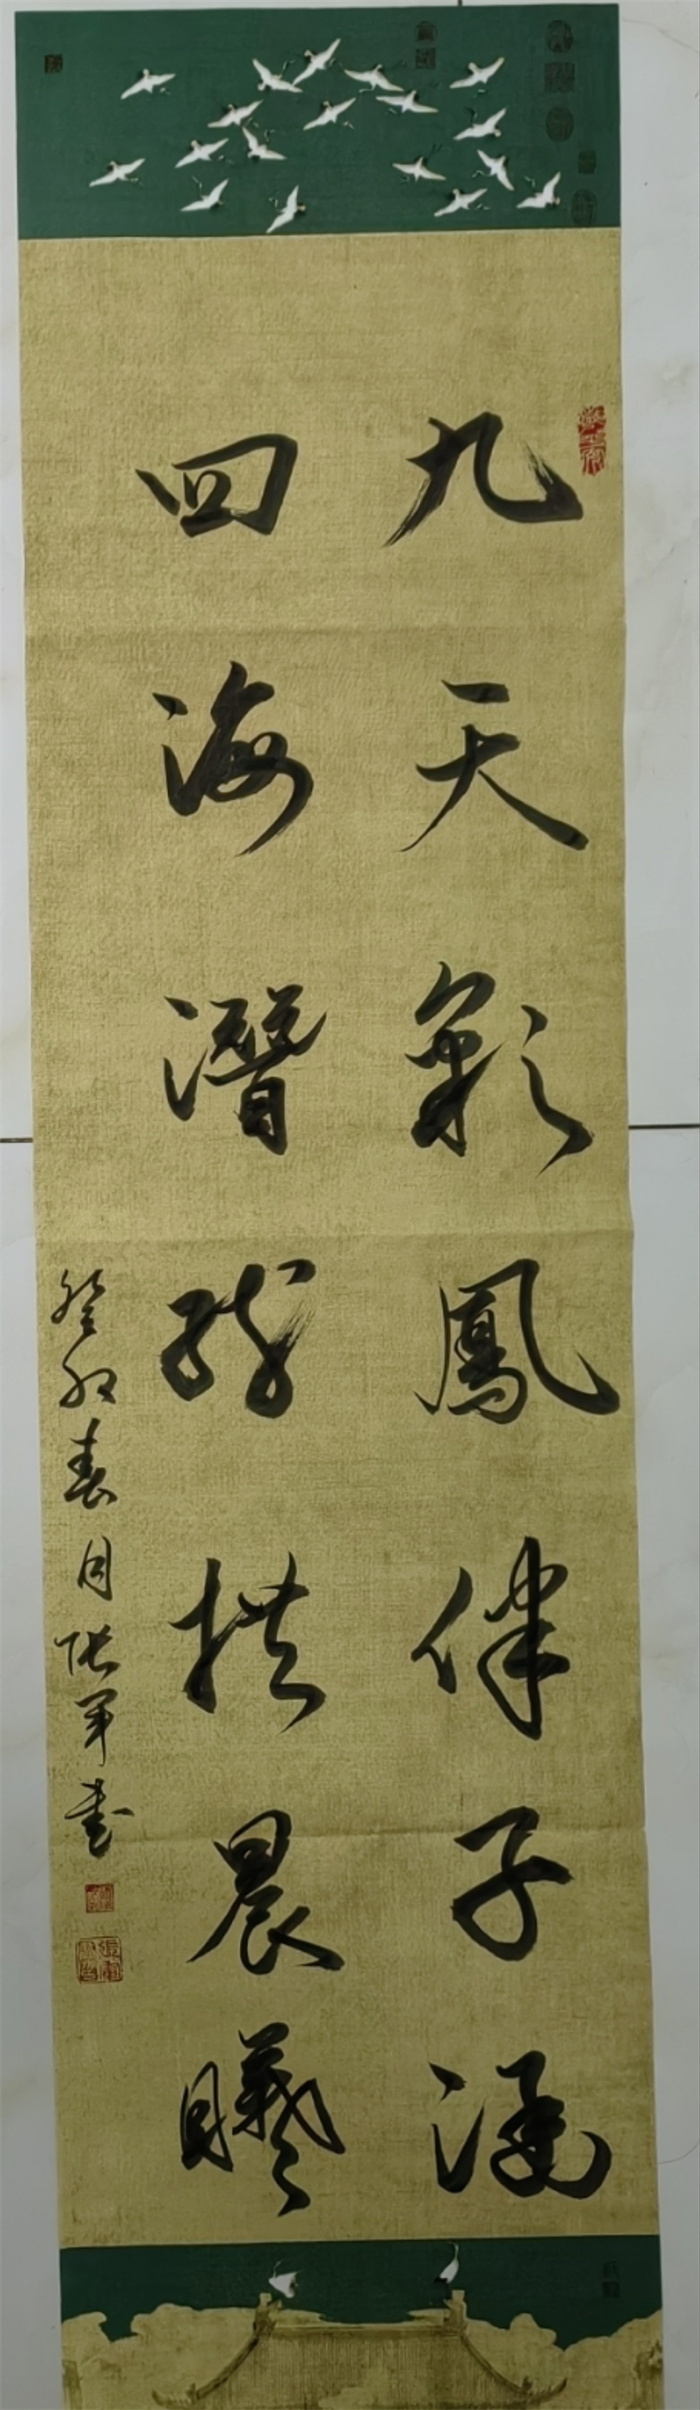 九天彩鳳伴子涵
四海潛龍拱晨曦
癸卯春月張軍書